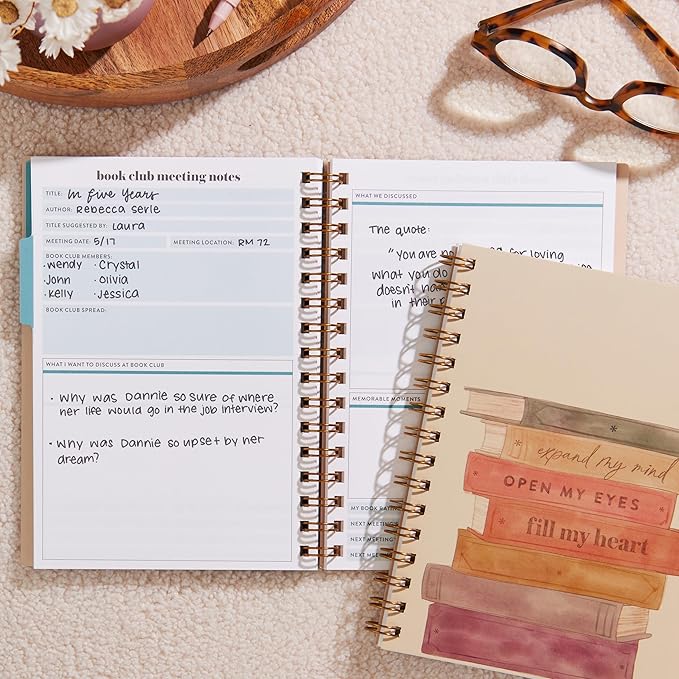 book club meeting notes
TITLE: In Five Years
AUTHOR: Rebecca Serle
TITLE SUGGESTED BY: Laura
MEETING DATE: 5/17 MEETING LOCATION: RM 72
BOOK CLUB MEMBERS:
·Wendy ·Crystal
·John ·Olivia
·Kelly ·Jessica
BOOK CLUB SPREAD:
WHAT I WANT TO DISCUSS AT BOOK CLUB
· Why was Dannie so sure of where
her life would go in the job interview?
· Why was Dannie so upset by her
dream?
WHAT WE DISCUSSED
The quote:
"You are for loving
what you do
doesn't
in their
MEMORABLE MOMENTS
MY BOOK RATING
NEXT MEETING
NEXT MEETING
NEXT MEETING
expand my mind
OPEN MY EYES
fill my heart